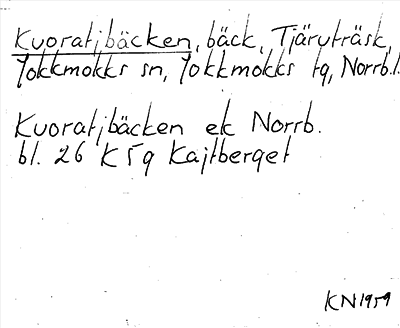 Kuoratjbäcken, bäck, Tjäruträsk,
Jokkmokks sn, Jokkmokks tg, Norrb.l.
Kuoratjbäcken ek Norrb.
bl. 26 K 5 g Kajtberget
KN 1959